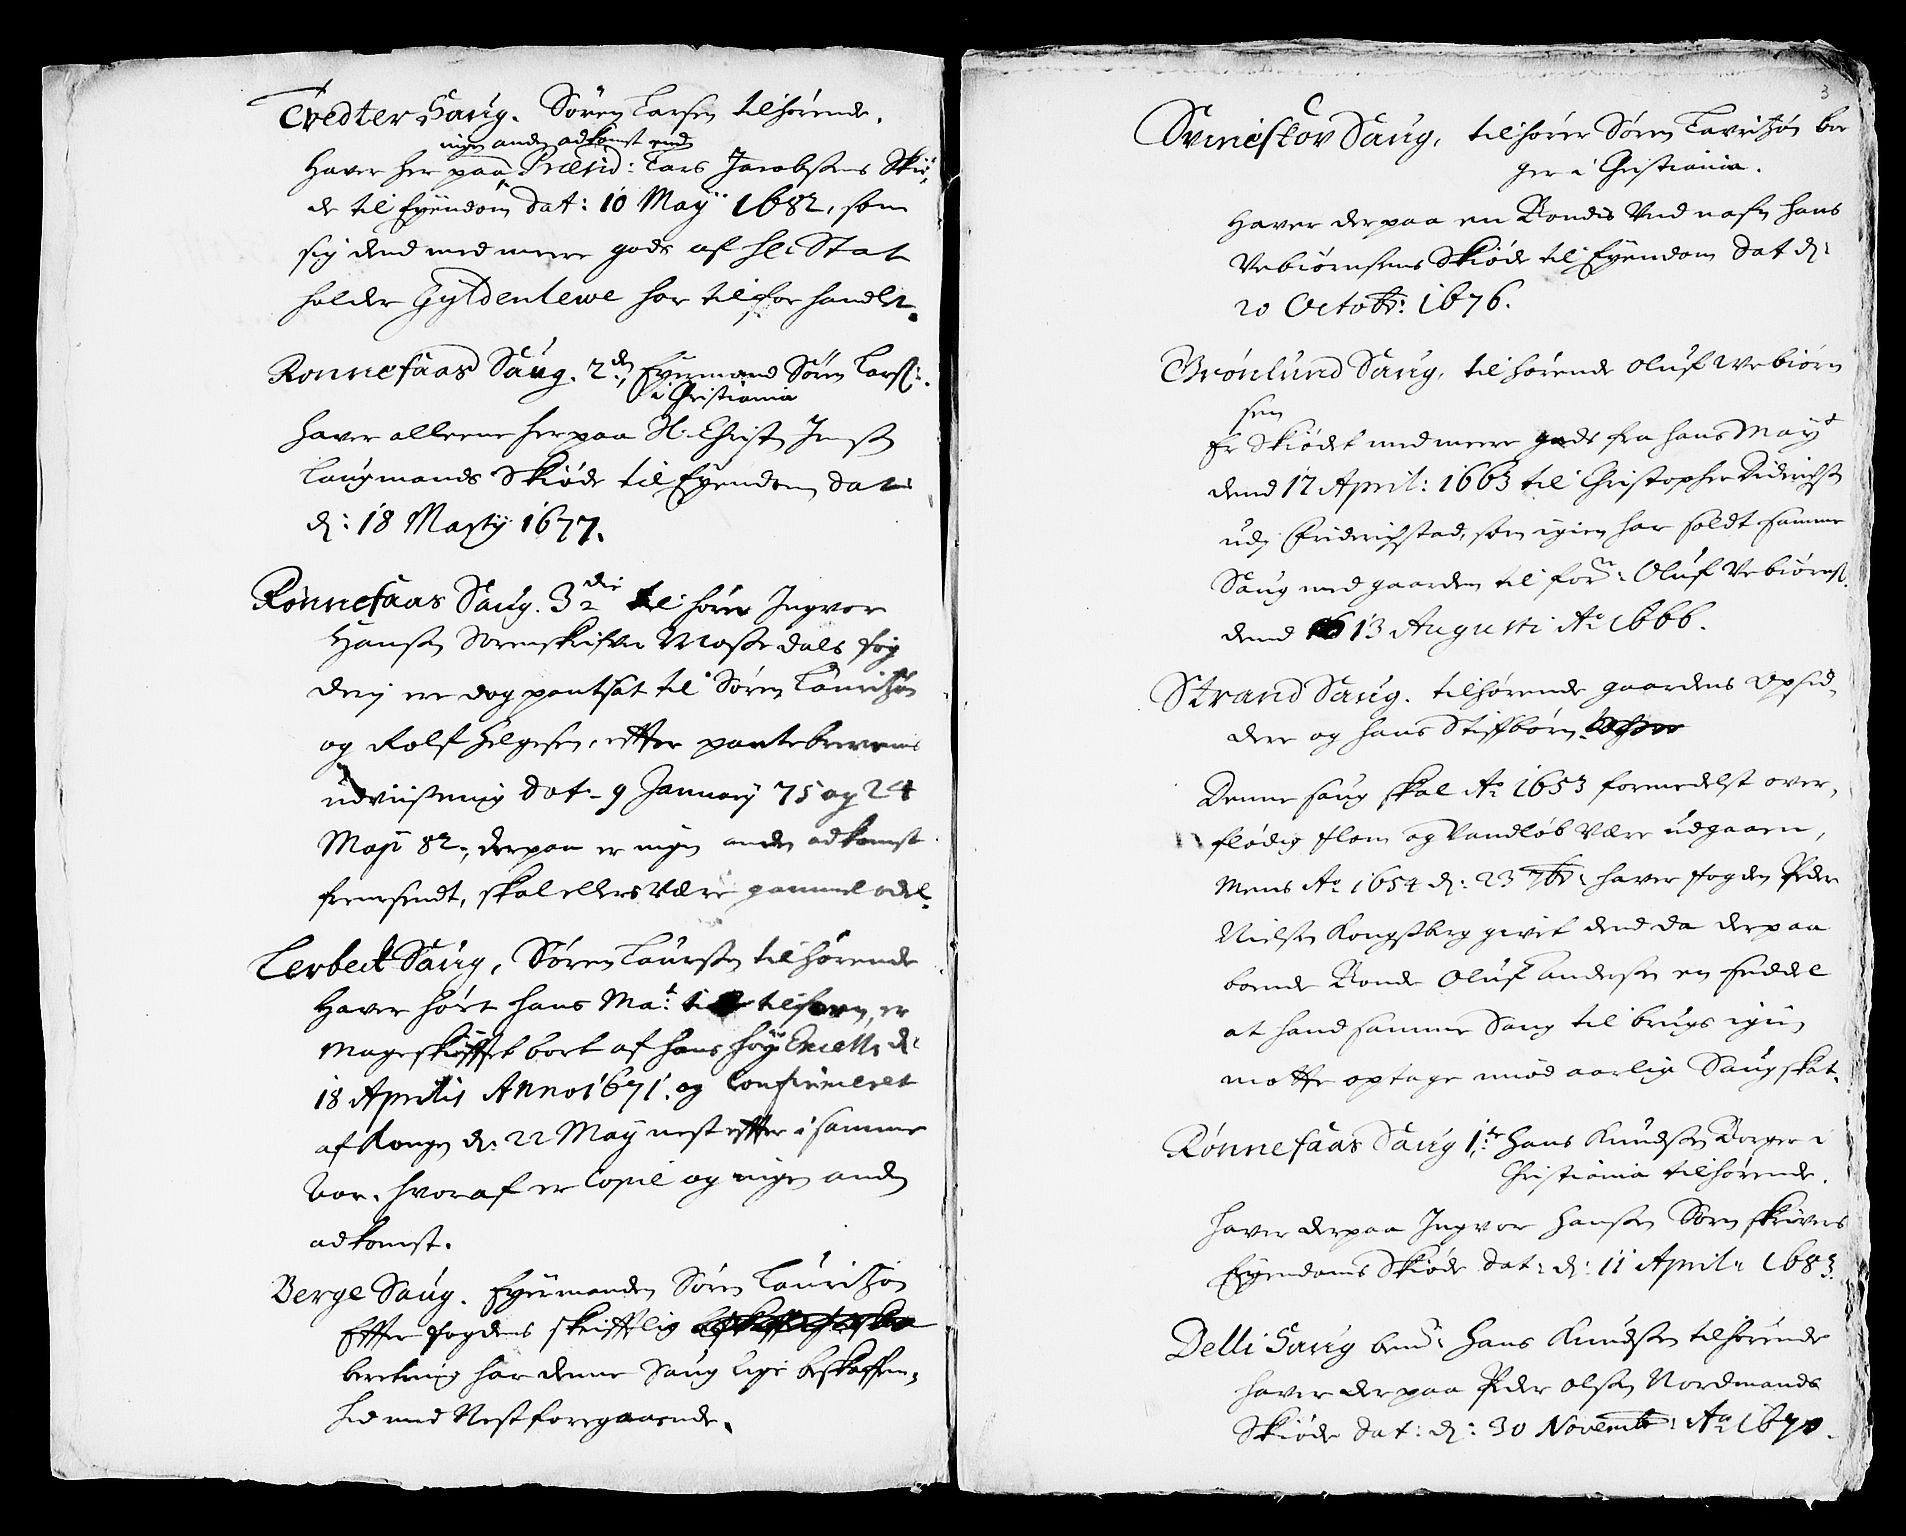 Tvedter Saug. Søren Larsen tilhørende.
ingen anden adkomst end
Haver her paa Præsid: Lars Jacobsens Skiø,
de til Eyendom dat: 10 Maÿ 1682, som
sig dend med meere gods af Hl: Stat
holder Gyldenlewe har tilforhandlet.
Ronnefaas Saug. 2den Eyermand Søren Larss:
i Christiania
Haver alleene herpaa H: Christen Jenss
Laugmands Skiøde til Eyendom dat
d: 18 Martÿ 1677.
Rønnefaas Saug. 3die tilhører Ingvor
Hanssen Sorenskrifver Mosse dals fog
derj ere dog pantsat til Søren Lauritzøn
og Rolf Helgesen, effter pantebrevenis
udviisning dat. 9 Januarÿ 75 og 24
Maji 82, derpaa er ingen anden adkomst
fremsendt, skal ellers være gammel odel.
Lerbeck Saug, Søren Laurssen tilhørende
Haver hørt hans Mat: til tilforn, er
Mageskifftet bort af hans høÿe Excell: d:
18 Aprilis Anno 1671. og Confirmeret
af Kongen d: 22 Maÿ nest effter i samme
Aar. hvoraf er Copie og ingen anden
adkomst.
Berge Saug. Eyermanden Søren Lauritzøn
Effter fogdens skrifftlig
beretning har denne Saug lige beskaffen,
hed med Nestforegaaende.
3
Svineskov Saug, tilhører Søren Lauritzøn bor
ger i Christiania.
Haver derpaa en Bondis ved nafn Hans
Vebiørnsens Skiøde til Eyendom dat d:
20 Octobr: 1676.
Grønlund Saug, tilhørende Oluf Webiørn
sen
Er Skiødet med meere gods fra hans Mayt
dend 17 April: 1663 til Christopher Diderichs
udj Friderichstad, som igien har soldt samme
Saug med gaarden til forne: Oluf Vebiørns.
dend 13 Augusti Ao 1666.
Strand Saug. tilhørende gaardens opsid,
dere og hans Stifbørn
Denne saug skal Ao 1653 formedelst over,
flødig flom og Vandløb være udgaaen,
Mens Ao 1654 d: 23 7br: haver fogden Peder
Nielsen Kongsberg givet dend da derpaa
boende Bonde Oluf Andersen en seddel
at hand samme Saug til brugs igien
motte optage imod aarlig Saugskat.
Rønnefaas Saug 1ste Hans Knudsen Borger i
Christiania tilhørende.
haver derpaa Ingvor Hansen Sorenskrivers
Eyendoms Skiøde dat: d: 11 April: 1683.
Delli Saug bemte: Hans Knudsen tilhørende
haver derpaa Peder Olsen Nordmands
Skiøde dat: d: 30 Novembr: Ao 1670.